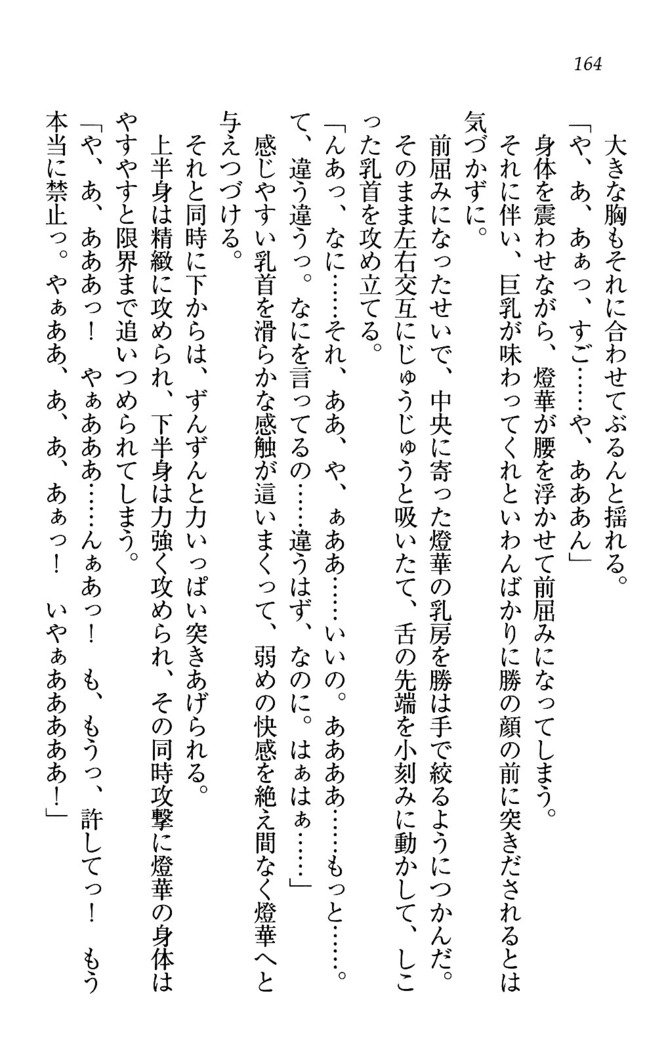 164
大きな胸もそれに合わせてぶるんと揺れる。
「や、あ、あぁっ、すご……や、あああん」
身体を震わせながら、燈華が腰を浮かせて前屈みになってしまう。
それに伴い、巨乳が味わってくれといわんばかりに勝の顔の前に突きだされるとは
気づかずに。
前屈みになったせいで、中央に寄った燈華の乳房を勝は手で絞るようにつかんだ。
そのまま左右交互にじゅうじゅうと吸いたて、舌の先端を小刻みに動かして、しこ
った乳首を攻め立てる。
「んあっ、なに……それ、ああ、や、ぁああ……いいの。ああああ……もっと……。
て、違う違うっ。なにを言ってるの……違うはず、なのに。はぁはぁ……」
感じやすい乳首を滑らかな感触が這いまくって、弱めの快感を絶え間なく燈華へと
与えつづける。
それと同時に下からは、ずんずんと力いっぱい突きあげられる。
上半身は精緻に攻められ、下半身は力強く攻められ、その同時攻撃に燈華の身体は
やすやすと限界まで追いつめられてしまう。
「や、あ、あああっ！　やぁあああ……んぁあっ！　も、もうっ、許してっ！　もう
本当に禁止っ。やぁああ、あ、あ、あぁっ！　いやぁああああああ！」